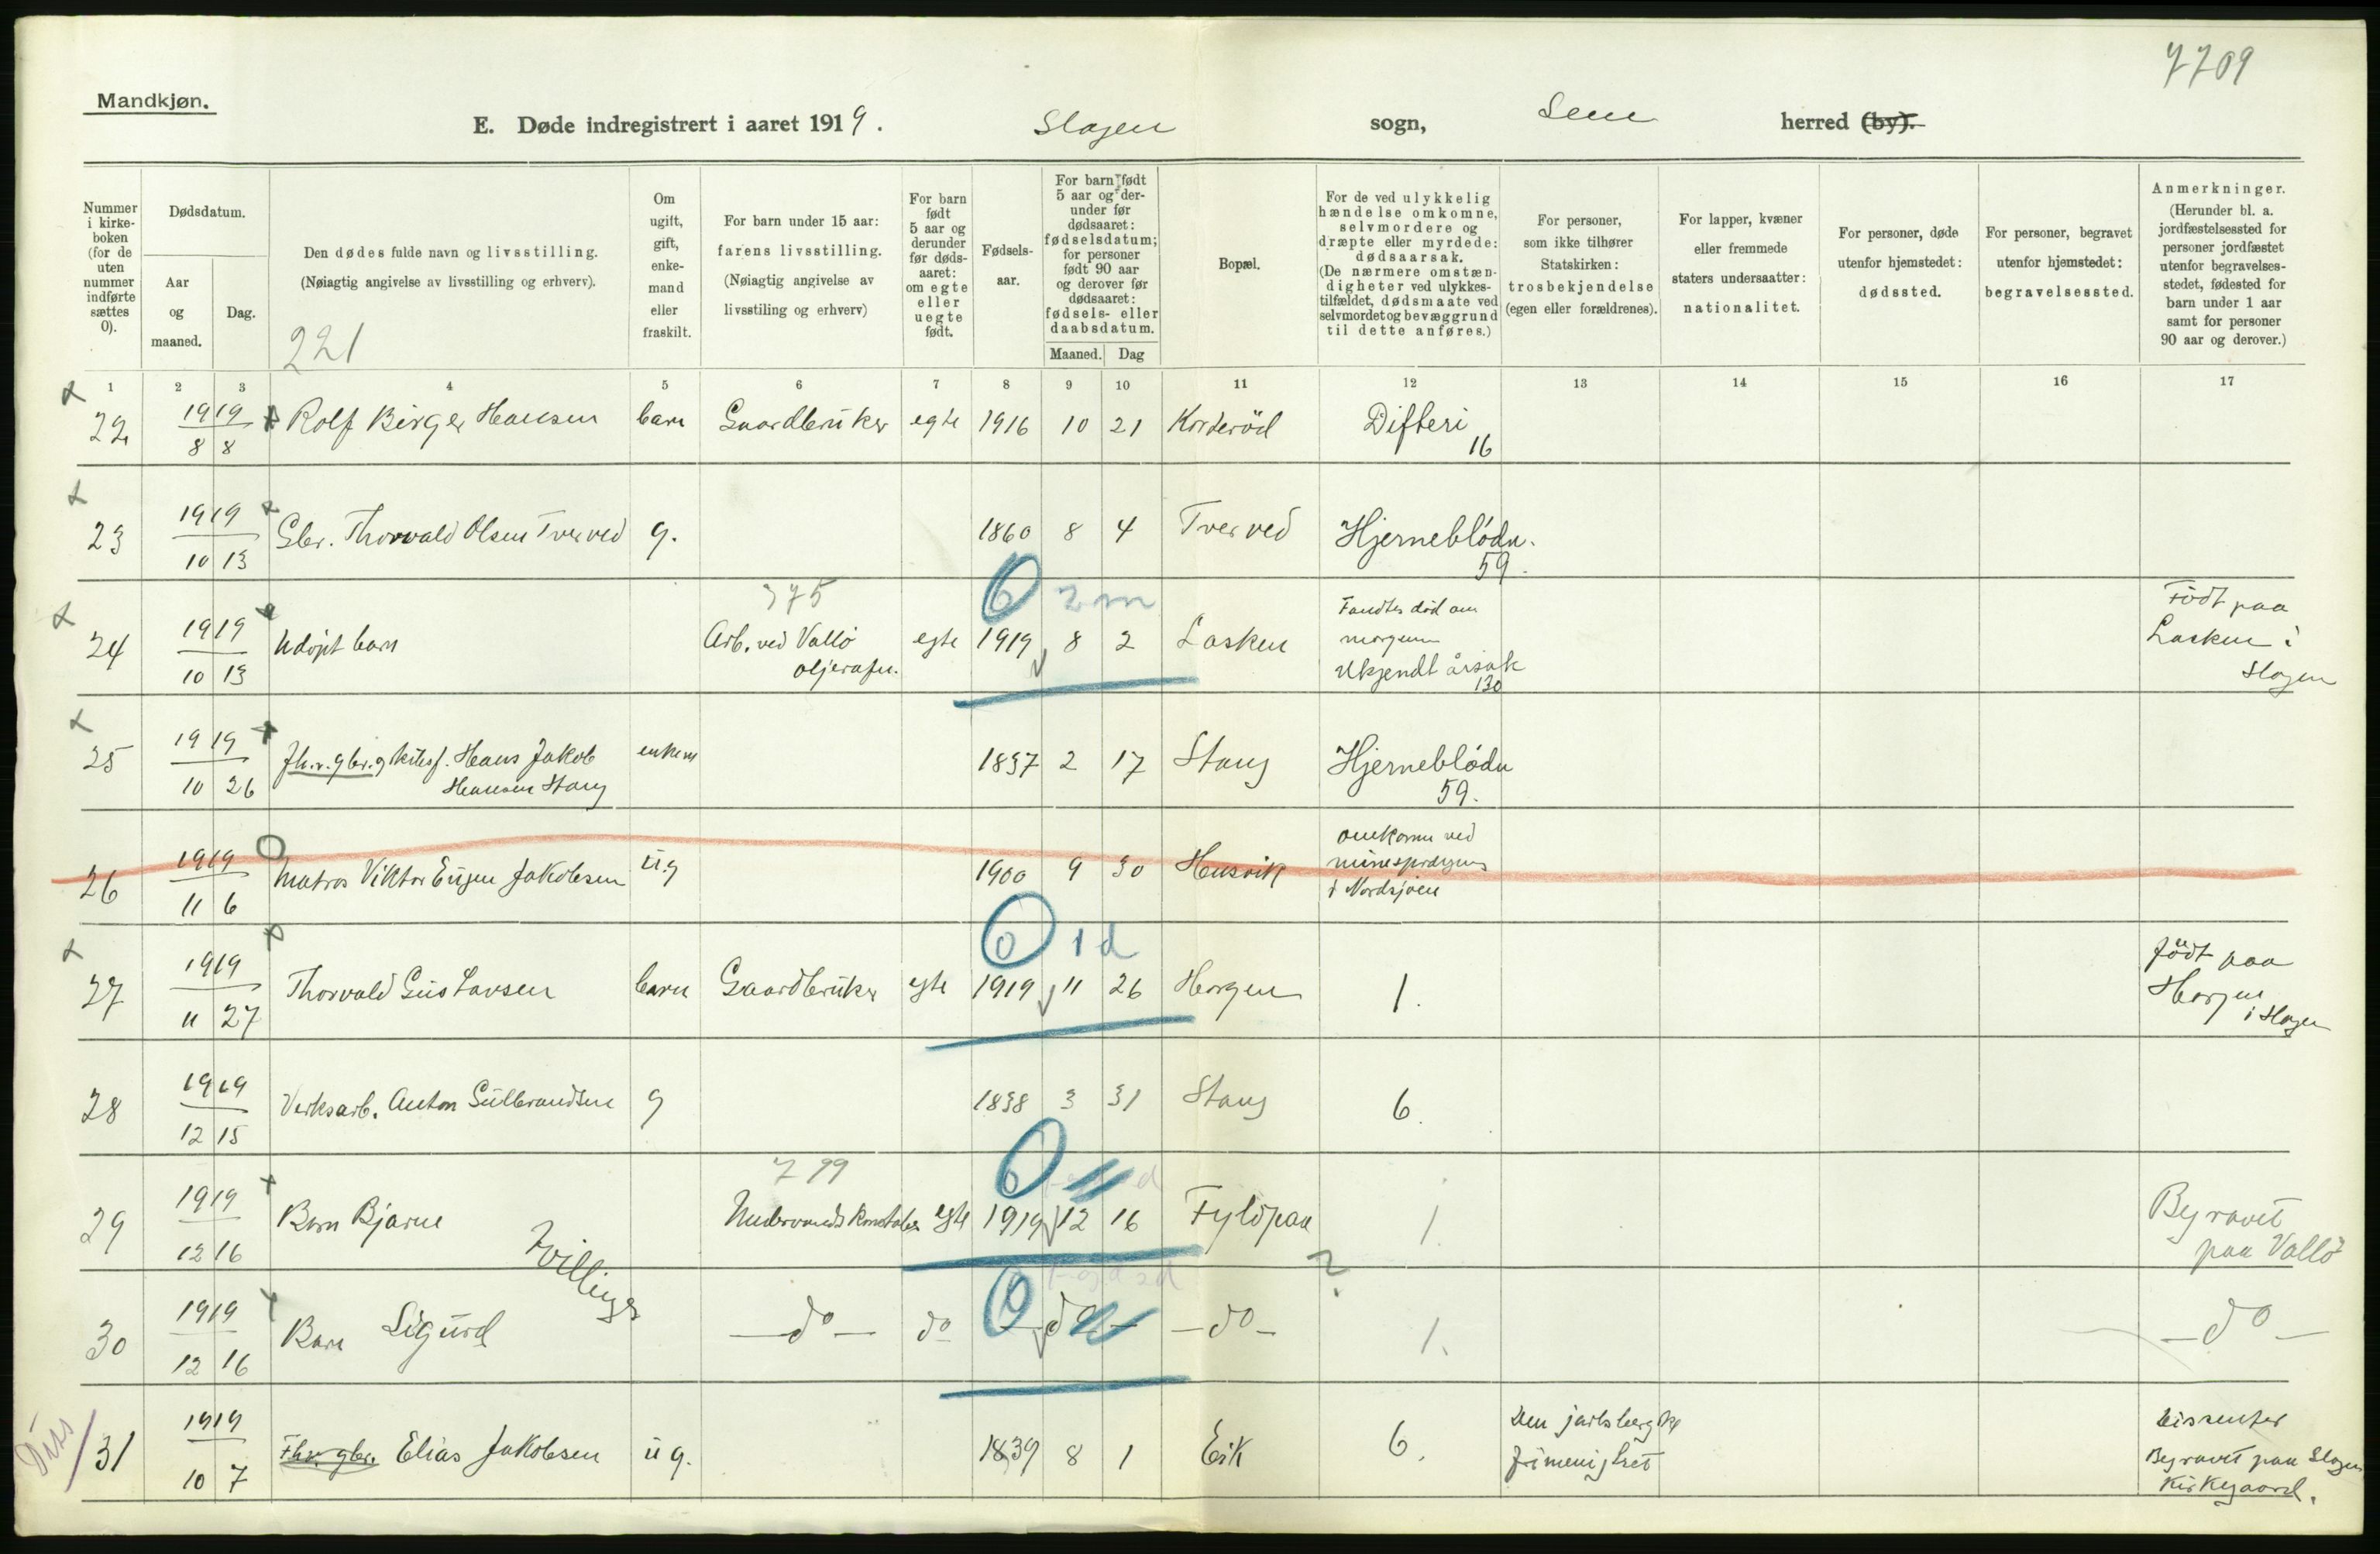 7709
Mandkjøn.
E. Døde indregistrert i aaret 1919. Slagen sogn, Sem herred (by).
Nummer i kirkeboken (for de uten nummer indførte sættes 0).
Dødsdatum.
Aar og maaned.
Dag.
Den dødes fulde navn og livsstilling.
(Nøiagtig angivelse av livsstilling og erhverv).
221
Om ugift, gift, enkemand eller fraskilt.
For barn under 15 aar:
farens livsstilling.
(Nøiagtig angivelse av livsstiling og erhverv)
For barn født 5 aar og derunder før dødsaaret: om egte eller uegte født.
Fødselsaar.
For barn født 5 aar og derunder før dødsaaret: fødselsdatum; for personer født 90 aar og derover før dødsaaret: fødsels- eller daabsdatum.
Maaned. Dag
Bopæl.
For de ved ulykkelig hændelse omkomne, selvmordere og dræpte eller myrdede: dødsaarsak.
(De nærmere omstændigheter ved ulykkestilfældet, dødsmaate ved selvmordet og bevæggrund til dette anføres.)
For personer, som ikke tilhører Statskirken: trosbekjendelse (egen eller forældrenes).
For lapper, kvæner eller fremmede staters undersaatter: nationalitet.
For personer, døde utenfor hjemstedet: dødssted.
For personer, begravet utenfor hjemstedet: begravelsessted.
Anmerkninger.
(Herunder bl. a. jordfæstelsessted for personer jordfæstet utenfor begravelsesstedet, fødested for barn under 1 aar samt for personer 90 aar og derover.)
1 2 3 4 5 6 7 8 9 10 11 12 13 14 15 16 17
22 1919 8 8 Rolf Birger Hansen barn Gaardbruker egte 1916 10 21 Korterød Difteri 16
23 1919 10 13 Gbr. Thorvald Olsen Tverved g. 1860 8 4 Tverved Hjerneblödn. 59.
375 0 2 m
24 1919 10 13 Udöpt barn Arb. ved Vallö oljerafn. egte 1919 8 2 Lasken Fandtes död om morgenen Ukjendt årsak 130 Födt paa Lasken i Slagen
25 1919 10 26 Fhv. gbr. g kirkes. Hans Jakob Hansen Stang enkem 1837 2 17 Stang Hjerneblödn 59.
26 1919 11 6 Matros Viktor Eugen Jakobsen ug 1900 9 30 Husvik omkomm ved minesprægng i Nordsjöen
0 1 d
27 1919 11 27 Thorvald Gustavsen barn Gaardbruker egte 1919 11 26 Horgen 1. födt paa Horgen i Slagen
28 1919 12 15 Verksarb. Anton Gulbrandsen g 1838 3 31 Stang 6.
799 0
29 1919 12 16 Barn Bjarne Tvillinger Underværksk egte 1919 12 16 Fylpaa 1. Begravet paa Vallö
?
30 1919 12 16 Barn Sigurd — do — do 0 — do — — do — 1. — do —
Diss
31 1919 10 7 Fhv. gbr. Elias Jakobsen ug. 1839 8 1 Eik 6. Den jarlsbergske frimenighet Dissenter Begravet paa Slagen Kirkegaard.